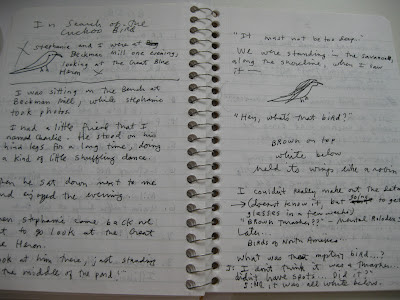 In Search of the
Cuckoo Bird
Stephanie and I were at
Beckman Mill one evening,
looking at the Great Blue
Heron
I was sitting on the Bench at
Beckman Mill, while Stephanie
took photos
I had a little friend that I
named Charlie. He stood on his
hind legs for a long time, doing
a kind of little shuffling dance.
when he sat down next to me
and enjoyed the evening.
when Stephanie came back we
went to go look at the Great
Blue Heron.
look at him there, just standing
in the middle of the pond!"
"It must not be too deep."
We were standing in the savanna,
along the shoreline, when I saw
it —
"Hey, what's that bird?"
BROWN on top
white below
held its wings like a robin
I couldn't really make out the
(doesn't know it, but going to get
glasses in a few weeks)
"BROWN Thrasher??" - Mental
Later...
Birds of North America
What was the mystery bird...?
S: I don't think it was a Thrasher...
didn't have spots... Did it?
No, it was all white below.